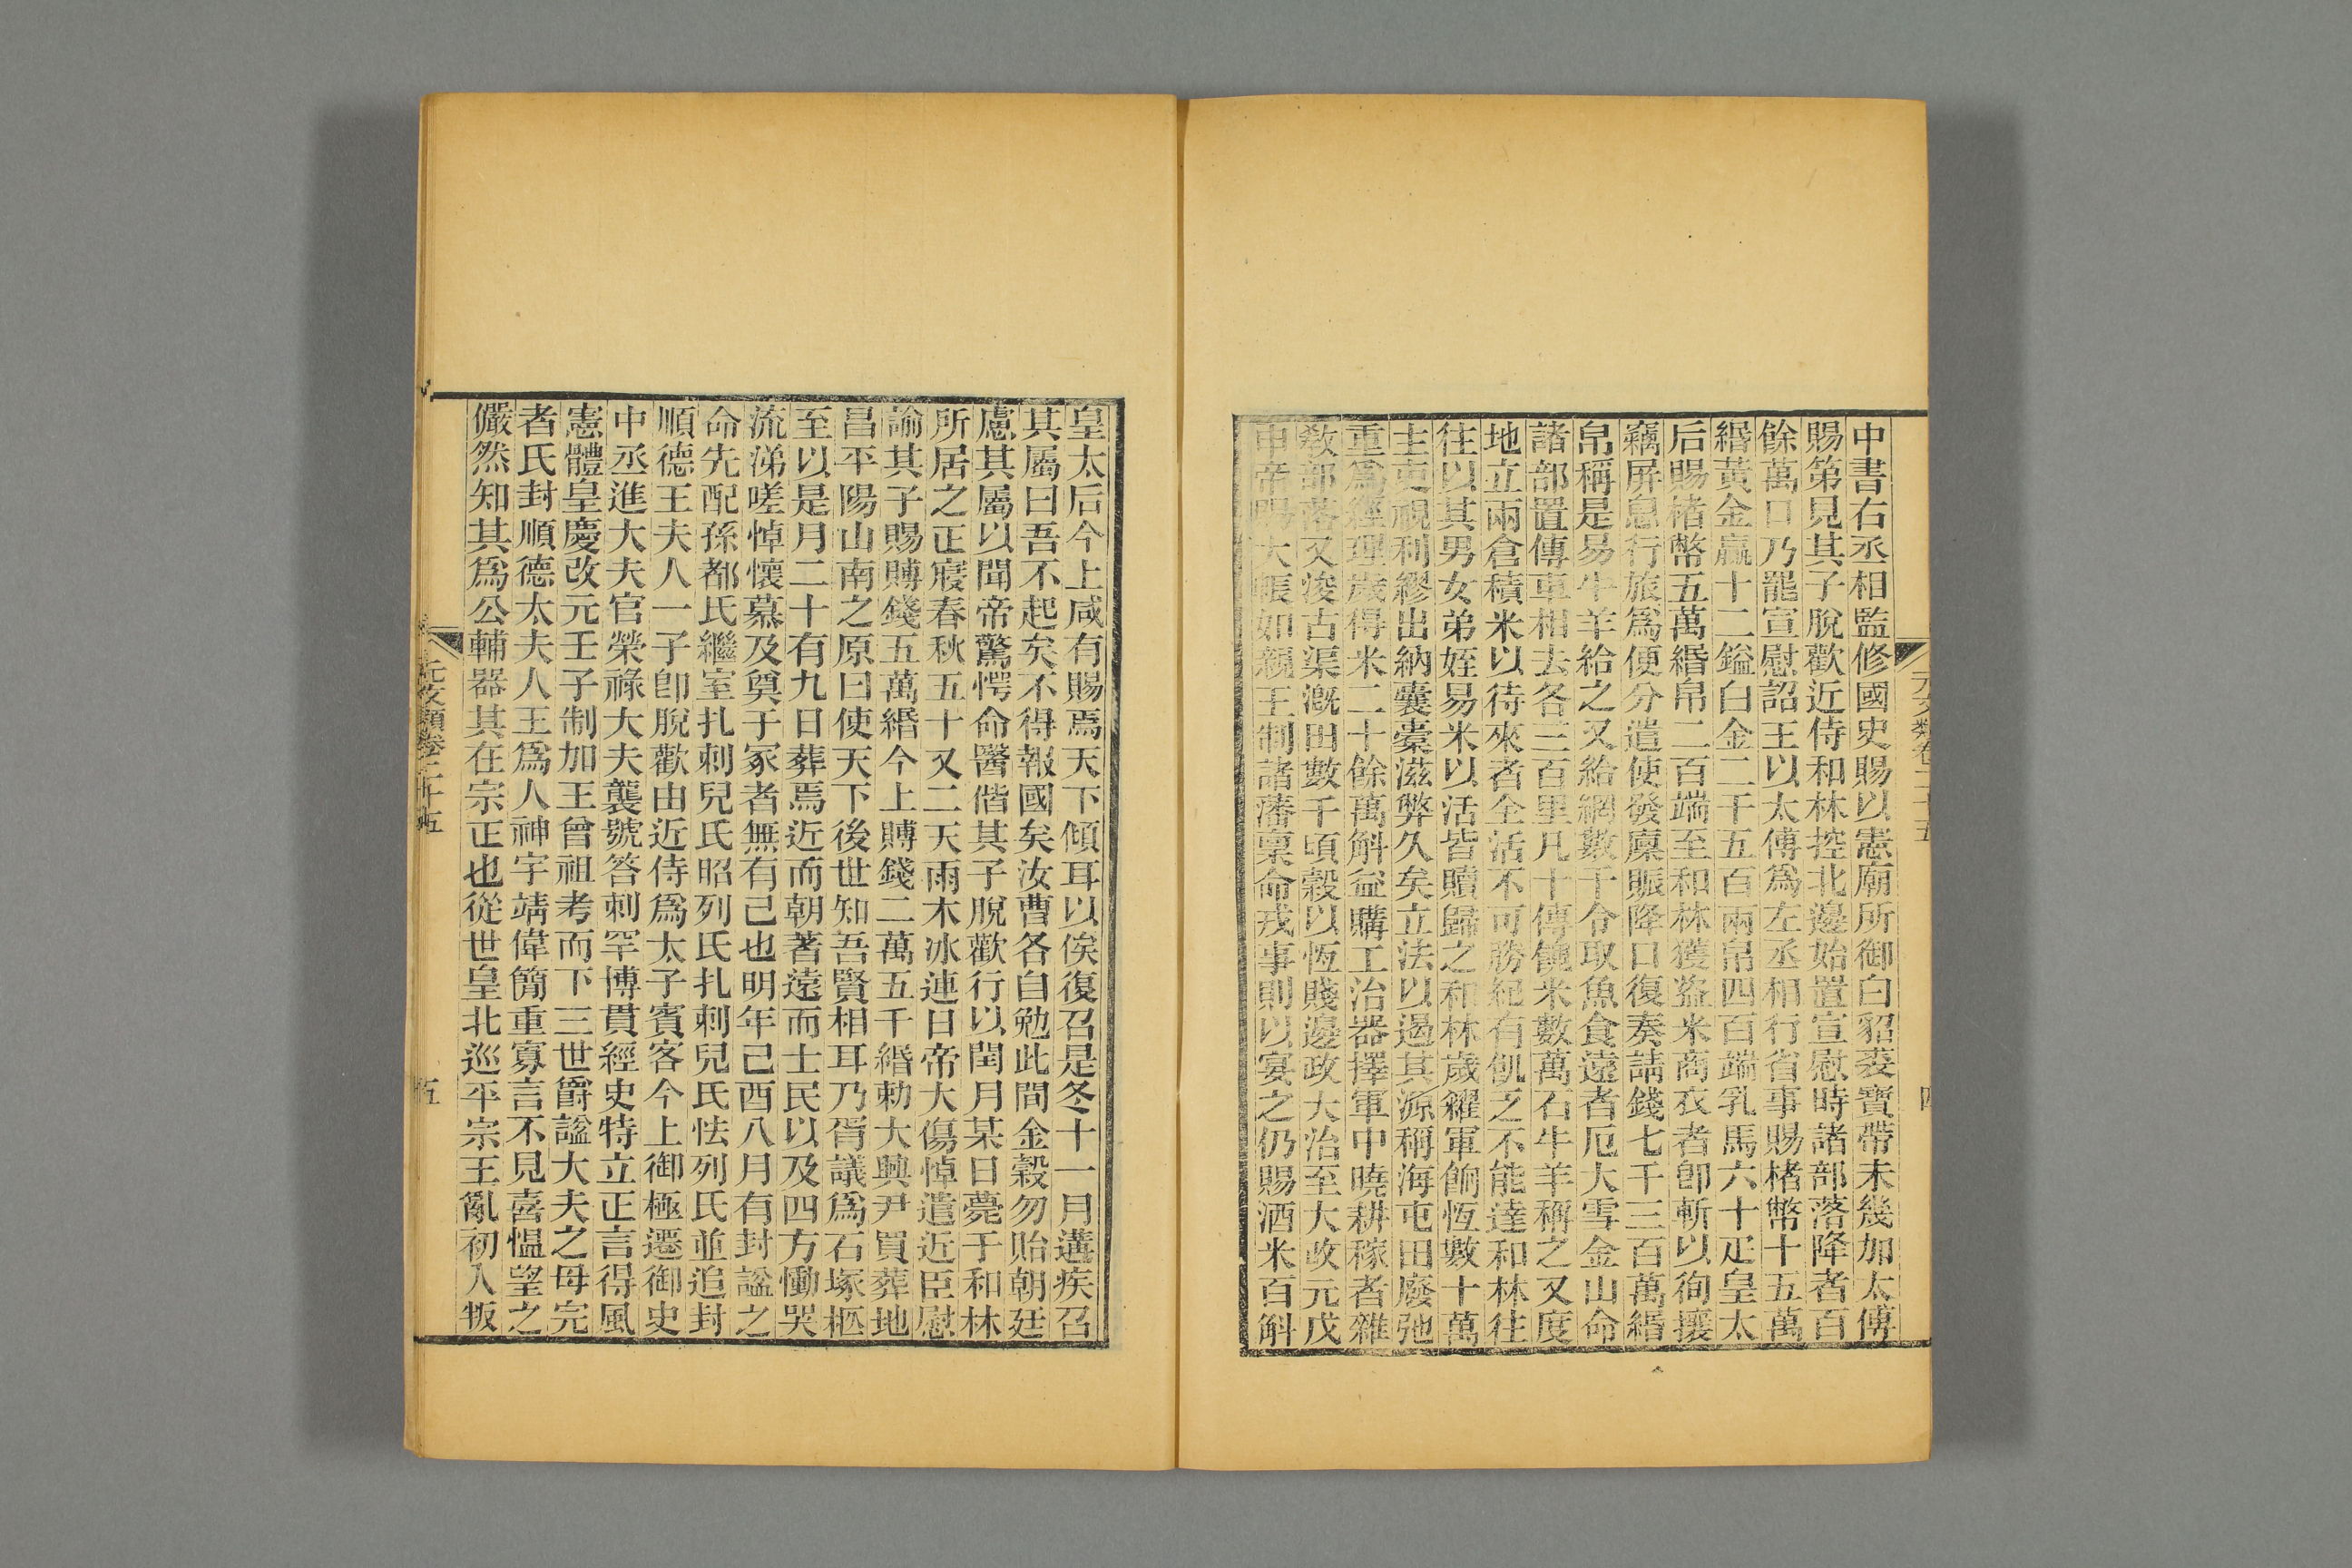 中書右丞相監修國史賜以憲廟所御白貂裘寶帶未幾加太傅
賜第見其子脫歡近侍和林控北邊始置宣慰時諸部落降者百
餘萬口乃罷宣慰詔王以太傅爲左丞相行省事賜楮幣十五萬
緡黃金贏十二鎰白金二千五百兩帛四百端乳馬六十疋皇太
后賜楮幣五萬緡帛二百端至和林獲盜米商衣者卽斬以徇攘
竊屏息行旅爲便分遣使發廩賑降口復奏請錢七千三百萬緡
帛稱是易牛羊給之又給網數千令取魚食遠者厄大雪金山命
諸部置傳車相去各三百里凡十傳饋米數萬石牛羊稱之又度
地立兩倉積米以待來者全活不可勝紀有飢乏不能達和林往
往以其男女弟姪易米以活皆贖歸之和林歲糴軍餉恆數十萬
主吏視利繆出納囊橐滋弊久矣立法以遏其源稱海屯田廢弛
重爲經理歲得米二十餘萬斛益購工治器擇軍中曉耕稼者雜
敎部落又浚古渠漑田數千頃穀以恆賤邊政大治至大改元戊
申帝賜大帳如親王制諸藩稟命戎事則以宴之仍賜酒米百斛
元文類卷二十五
四
皇太后今上咸有賜焉天下傾耳以俟復召是冬十一月遘疾召
其屬曰吾不起矣不得報國矣汝曹各自勉此間金穀勿貽朝廷
慮其屬以聞帝驚愕命醫偕其子脫歡行以閏月某日薨于和林
所居之正寢春秋五十又二天雨木冰連日帝大傷悼遣近臣慰
諭其子賜賻錢五萬緡今上賻錢二萬五千緡勅大興尹買葬地
昌平陽山南之原曰使天下後世知吾賢相耳乃胥議爲石塚柩
至以是月二十有九日葬焉近而朝著遠而士民以及四方慟哭
流涕嗟悼懷慕及奠于冢者無有己也明年己酉八月有封諡之
命先配孫都氏繼室扎剌兒氏昭列氏扎剌兒氏怯列氏並追封
順德王夫人一子卽脫歡由近侍爲太子賓客今上御極遷御史
中丞進大夫官榮祿大夫襲號答剌罕博貫經史特立正言得風
憲體皇慶改元壬子制加王曾祖考而下三世爵諡大夫之母完
者氏封順德太夫人王爲人神宇靖偉簡重寡言不見喜慍望之
儼然知其爲公輔器其在宗正也從世皇北巡平宗王亂初入叛
元文類卷二十五
五